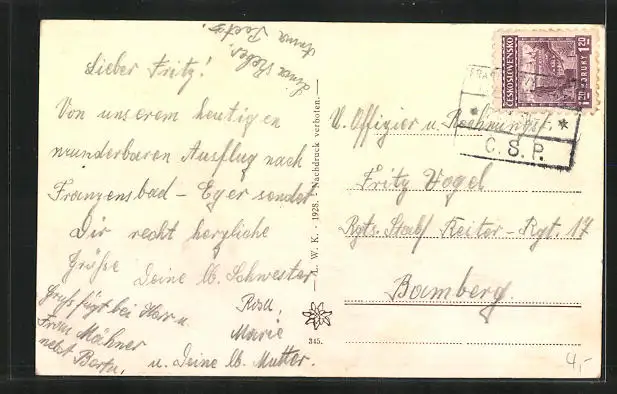 Lieber Fritz!
Von unserem heutigen
wunderbaren Ausflug nach
Franzensbad - Eger sendet
Dir recht herzliche
Grüße Deine lb. Schwester
Rosa,
Marie
u. Deine lb. Mutter.
Gruß fügt bei Herr u.
Frau Mähner
nebst Berta,
Anna
L. W. K. - 1928. Nachdruck verboten.
345.
ČESKOSLOVENSKO
1.20 KORUNY 1.20
C.S.P.
U. Offizier u. Rechnungsf.
Fritz Vogel
Rgts. Stab Reiter-Rgt. 17
Bamberg.
4,-